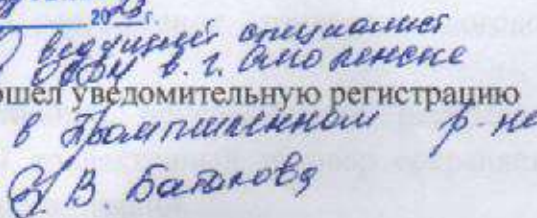 2023 г.
ведущий специалист
в г. Смоленске
ошел уведомительную регистрацию
в Промышленном р-не
В. Батакова